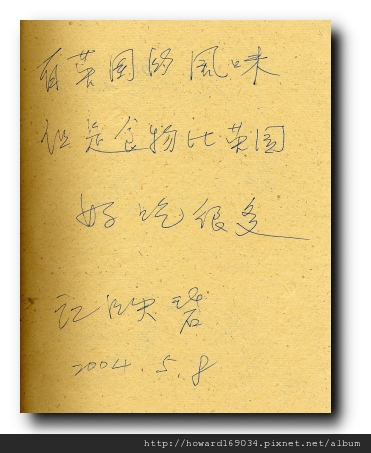 有英国的風味
但是食物比英国
好吃很多
2004.5.8
http://howard169034.pixnet.net/album